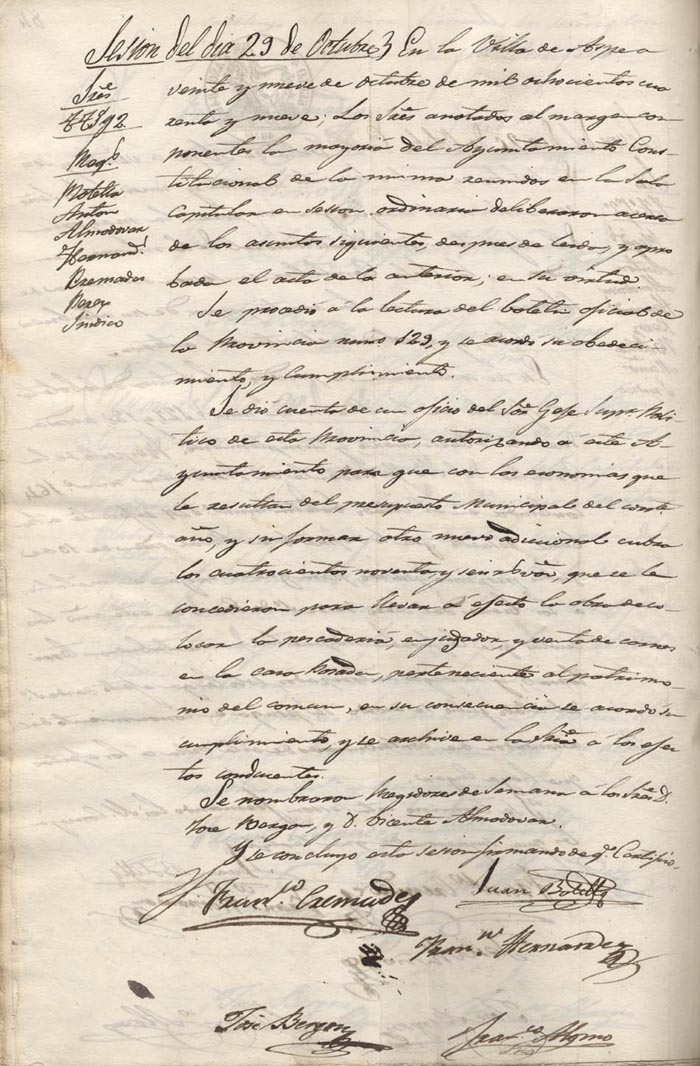 Sesion del dia 29 de Octubre} En la Villa de Aspe a
veinte y nueve de octubre de mil ochocientos cua
renta y nueve; Los Sres anotados al margen com
ponentes la mayoria del Ayuntamiento Cons-
titucional de la misma reunidos en la Sala
Capitular en sesion ordinaria deliberaron acerca
de los asuntos siguientes, despues de leida, y apro
bada el acta de la anterior; en su virtud
Sres
Reg.s
Botella
Anton
Almodovar
Hernand.s
Cremades
Berg.n
Sindico
Se procedió á la lectura del boletin oficial de
la Provincia num.o 129, y se acordó su obedeci
miento, y Cumplimiento.
Se dió cuenta de un oficio del Sor Gefe Supr. Poli-
tico de esta Provincia, autorizando á este A-
yuntamiento para que con las economias que
le resultan del presupuesto Municipal del corrte
año, y sin formar otro nuevo adicional cubra
los cuatrocientos noventa y seis r.s vón, que se le
concedieron para llevar á efecto la obra de co-
locar la pescaderia, y venta de carnes
en la casa Posada, perteneciente al patrimo-
nio del comun, en su consecuencia se acordó su
cumplimiento, y se archive en la Sria á los efec
tos conducentes.
Se nombraron Regidores de Semana á los Sres D.
Jose Bergon, y D. Vicente Almodovar.
Y se concluyo esta sesion firmando de q.e Certifico.
Fran.co Cremades
Juan Botella
Fran.co Hernandez
José Bergon
Fran.co